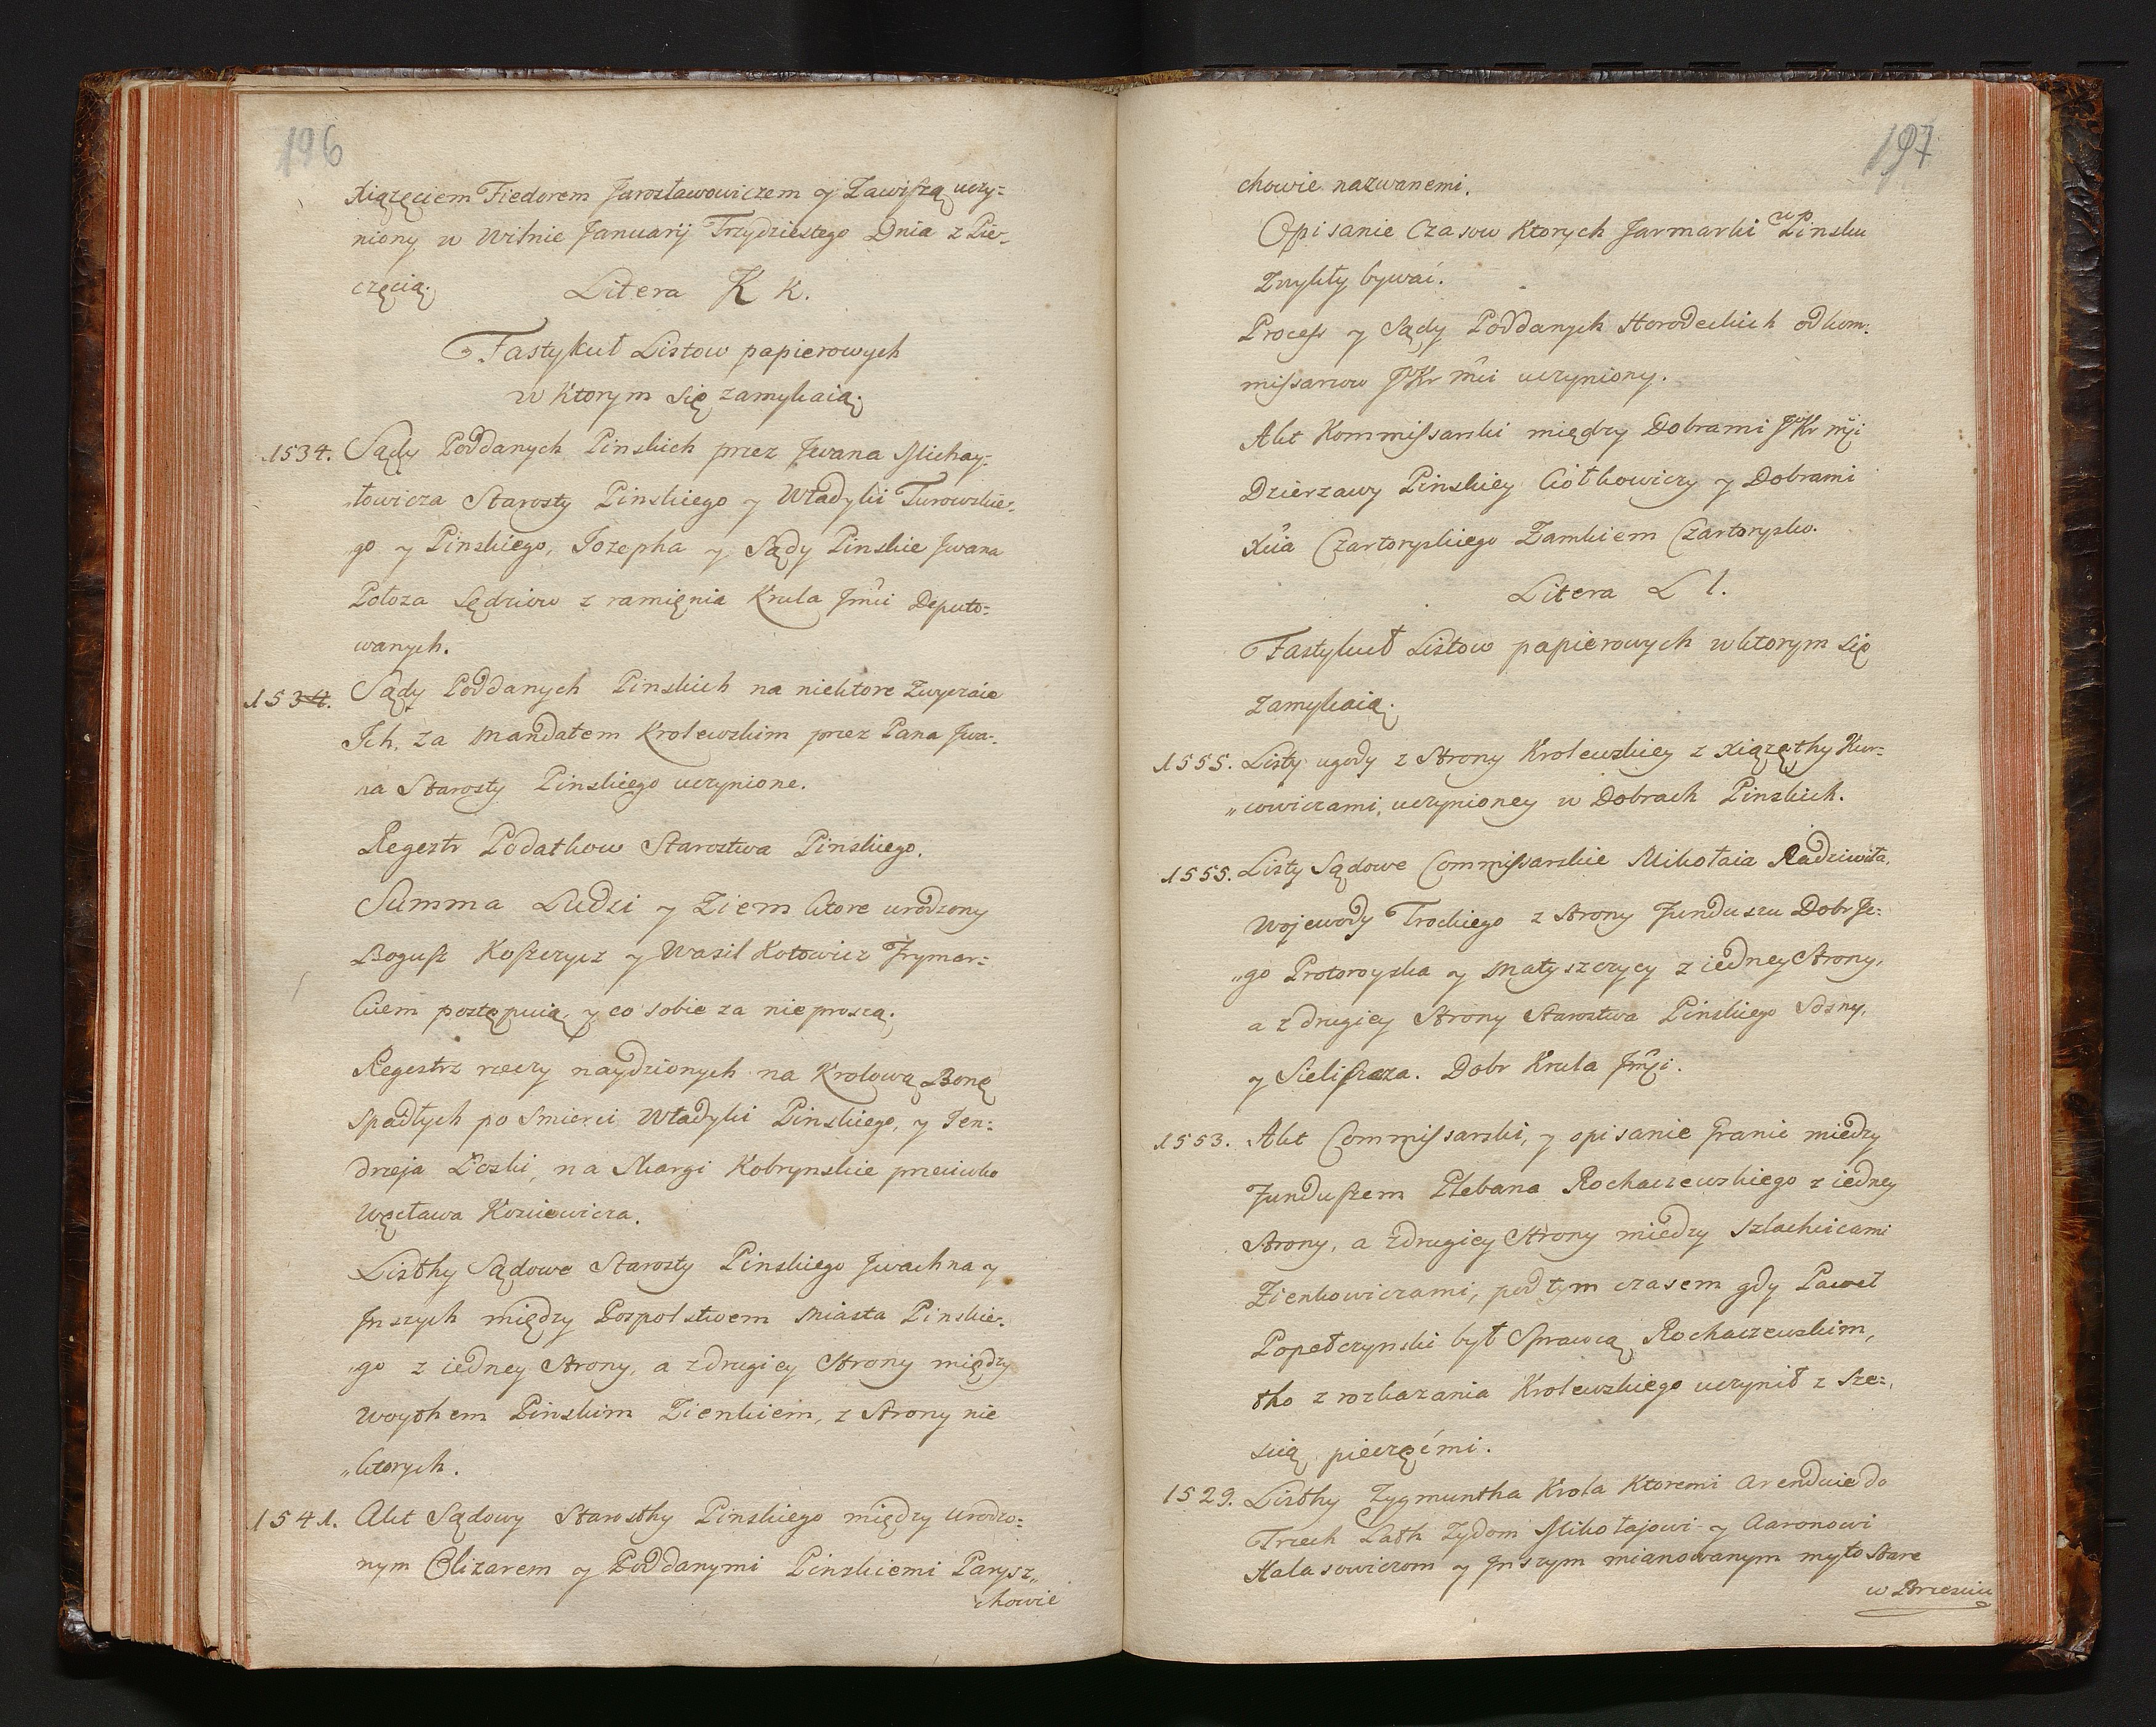 196
Xiążęciem Fiedorem Jarosławowiczem y Zawiszą uczy=
niony w Wilnie Januarij Trzydziestego Dnia z Pie-
częcią.
Litera K k.
Fastykuł Listow papierowych
w Ktorym Się zamykaią.
1534. Sądy Poddanych Pinskich przez Jwana Michay:
łowicza Starosty Pinskiego y Władyki Turowskie,
go y Pinskiego, Jozepha y Sądy Pinskie Jwana
Połoza Sędziow z ramięnia Krula Jmci Deputo=
wanych.
1534. Sądy Poddanych Pinskich na niektore Zwyczaie
Jch, za Mandatem Krolewskim przez Pana Jwa-
na Starosty Pinskiego uczynione.
Regestr Podatkow Starostwa Pinskiego.
Summa Ludzi y Ziem ktore urodzony
Bogusz Koszczycz y Wasil Kotowicz Frymar=
kiem postępuią, y co sobie za nie proszą.
Regestrz rzeczy naydzionych na Krolową Bonę
spadłych po Smierci Władyki Pinskiego, y Jen:
drzeja Łoski, na Skargi Kobrynskie przeciwko
Węcława Kozniewicza.
Listhy Sądowe Starosty Pinskiego Jwachna y
Jnszych między Pospolstwem Miasta Pinskie.
„go z iedney Strony, a z drugiey Strony między
Woythem Pinskim Zienkiem, z Strony nie
„ktorych.
1541. Akt Sądowy Starosthy Pinskiego między urodzo=
nym Olizarem y Poddanymi Pinskiemi Parysz„
chowie
197
chowie nazwanemi.
Opisanie Czasow Ktorych Jarmarki w Pinsku
Zwykły bywać.
Process y Sądy Poddanych Horodeckich od kom.
missarzow JKr Mci uczyniony.
Akt Kommissarski między Dobrami JKr Mci
Dzierzawy Pinskiey Ciołkowiczy y Dobrami
Xcia Czartoryskiego Zamkiem Czartorysko.
Litera L l.
Fastykuł Listow papierowych w ktorym Się
zamykaią.
1555. Listy ugody z Strony Krolewskiey z Xiążęthy Kur=
„cowiczami, uczynioney w Dobrach Pinskich.
1555. Listy Sądowe Commissarskie Mikołaia Radziwiła,
Wojewody Trockiego z Strony Funduszu Dobr Je:
„go Protoroyska y Matyszczycy z iedney Strony,
a z drugiey Strony Starostwa Pinskiego Sosny,
y Sieliszcza. Dobr Krula Jmci.
1553. Akt Commissarski, y opisanie Granic miedzy
Funduszem Plebana Rochaczewskiego z iedney
Strony, a z drugiey Strony miedzy Szlachcicami
Zienkowiczami, pod tym czasem gdy Paweł
Popełczynski był Sprawcą Rochaczewskim,
tho z rozkazania Krolewskiego uczynił z Sze=
scią pieczęćmi.
1529. Listhy Zygmuntha Krola Ktoremi arenduie do
Trzech Lath Zydom Mikołajowi y Aaronowi
Halasowiczom y Jnszym mianowanym myto Stare
w Brzesciu